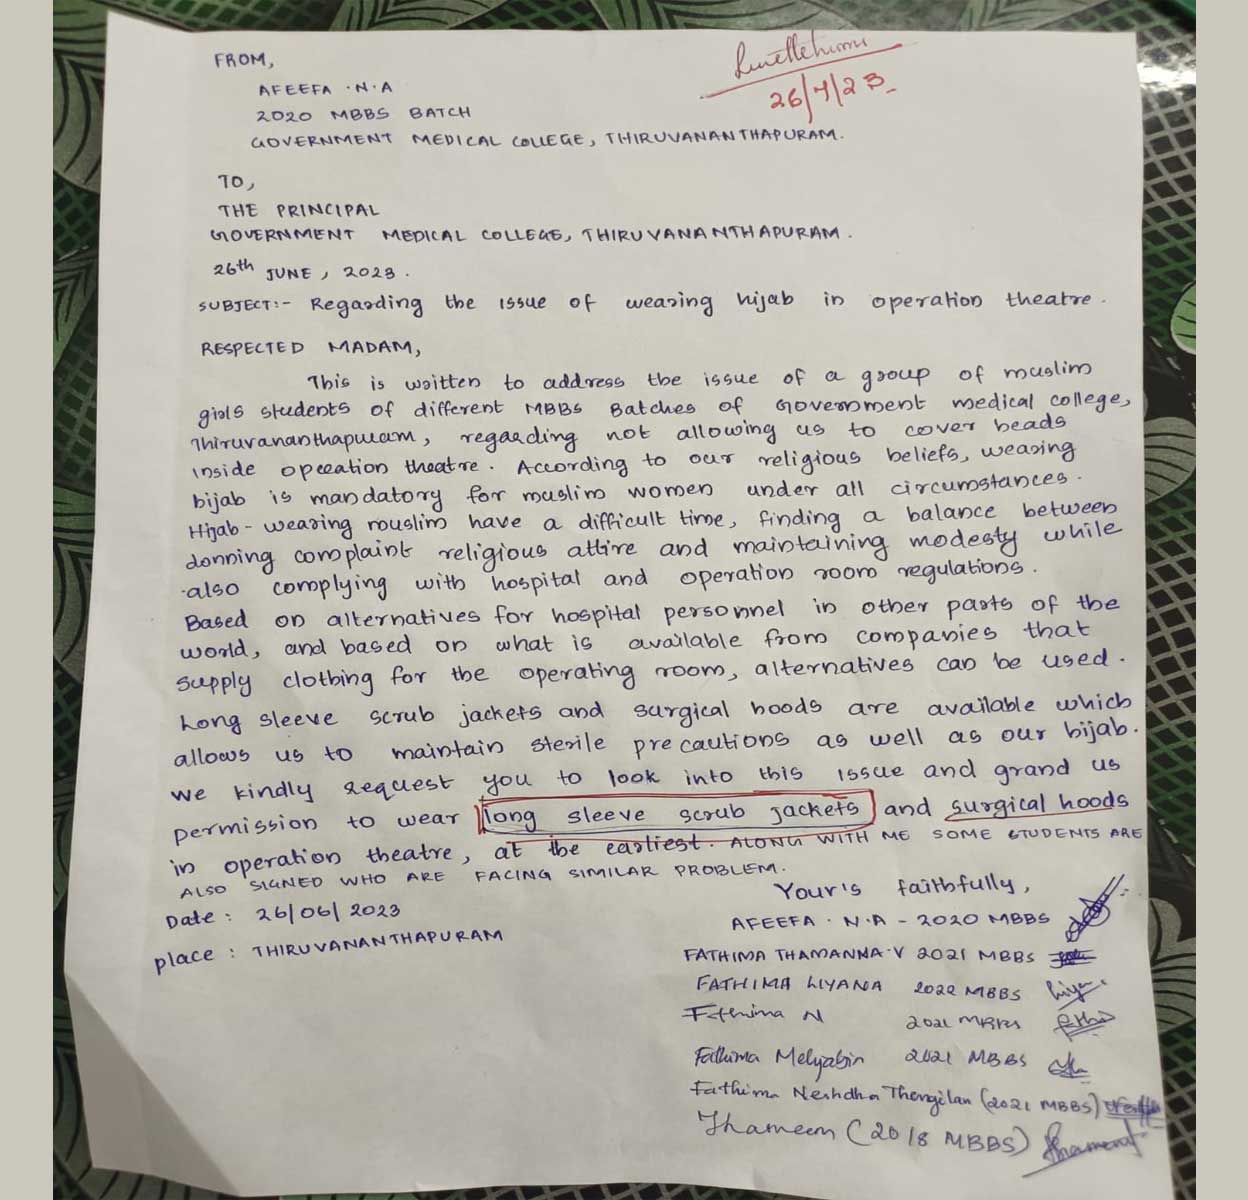 FROM,
26/7/23
AFEEFA .N.A
2020 MBBS BATCH
GOVERNMENT MEDICAL COLLEGE, THIRUVANANTHAPURAM.
TO,
THE PRINCIPAL
GOVERNMENT MEDICAL COLLEGE, THIRUVANANTHAPURAM.
26th JUNE, 2023.
SUBJECT:- Regarding the issue of wearing hijab in operation theatre.
RESPECTED MADAM,
This is written to address the issue of a group of muslim
girls students of different MBBS Batches of Government medical college,
Thiruvananthapuram, regarding not allowing us to cover heads
inside operation theatre. According to our religious beliefs, wearing
hijab is mandatory for muslim women under all circumstances.
Hijab-wearing muslim have a difficult time, finding a balance between
donning complaint religious attire and maintaining modesty while
also complying with hospital and operation room regulations.
Based on alternatives for hospital personnel in other parts of the
world, and based on what is available from companies that
supply clothing for the operating room, alternatives can be used.
Long sleeve scrub jackets and surgical hoods are available which
allows us to maintain sterile precautions as well as our hijab.
We kindly request you to look into this issue and grand us
permission to wear long sleeve scrub jackets and surgical hoods
in operation theatre, at the earliest. ALONG WITH ME SOME STUDENTS ARE
ALSO SIGNED WHO ARE FACING SIMILAR PROBLEM.
Your's faithfully,
Date: 26/06/2023
AFEEFA.N.A - 2020 MBBS
place: THIRUVANANTHAPURAM
FATHIMA THAMANNA.V 2021 MBBS
FATHIMA LIYANA 2022 MBBS
Fathima N 2021 MBBS
Fathima 2021 MBBS
Fathima Neshdha Thengilan (2021 MBBS)
Thameem (2018 MBBS)